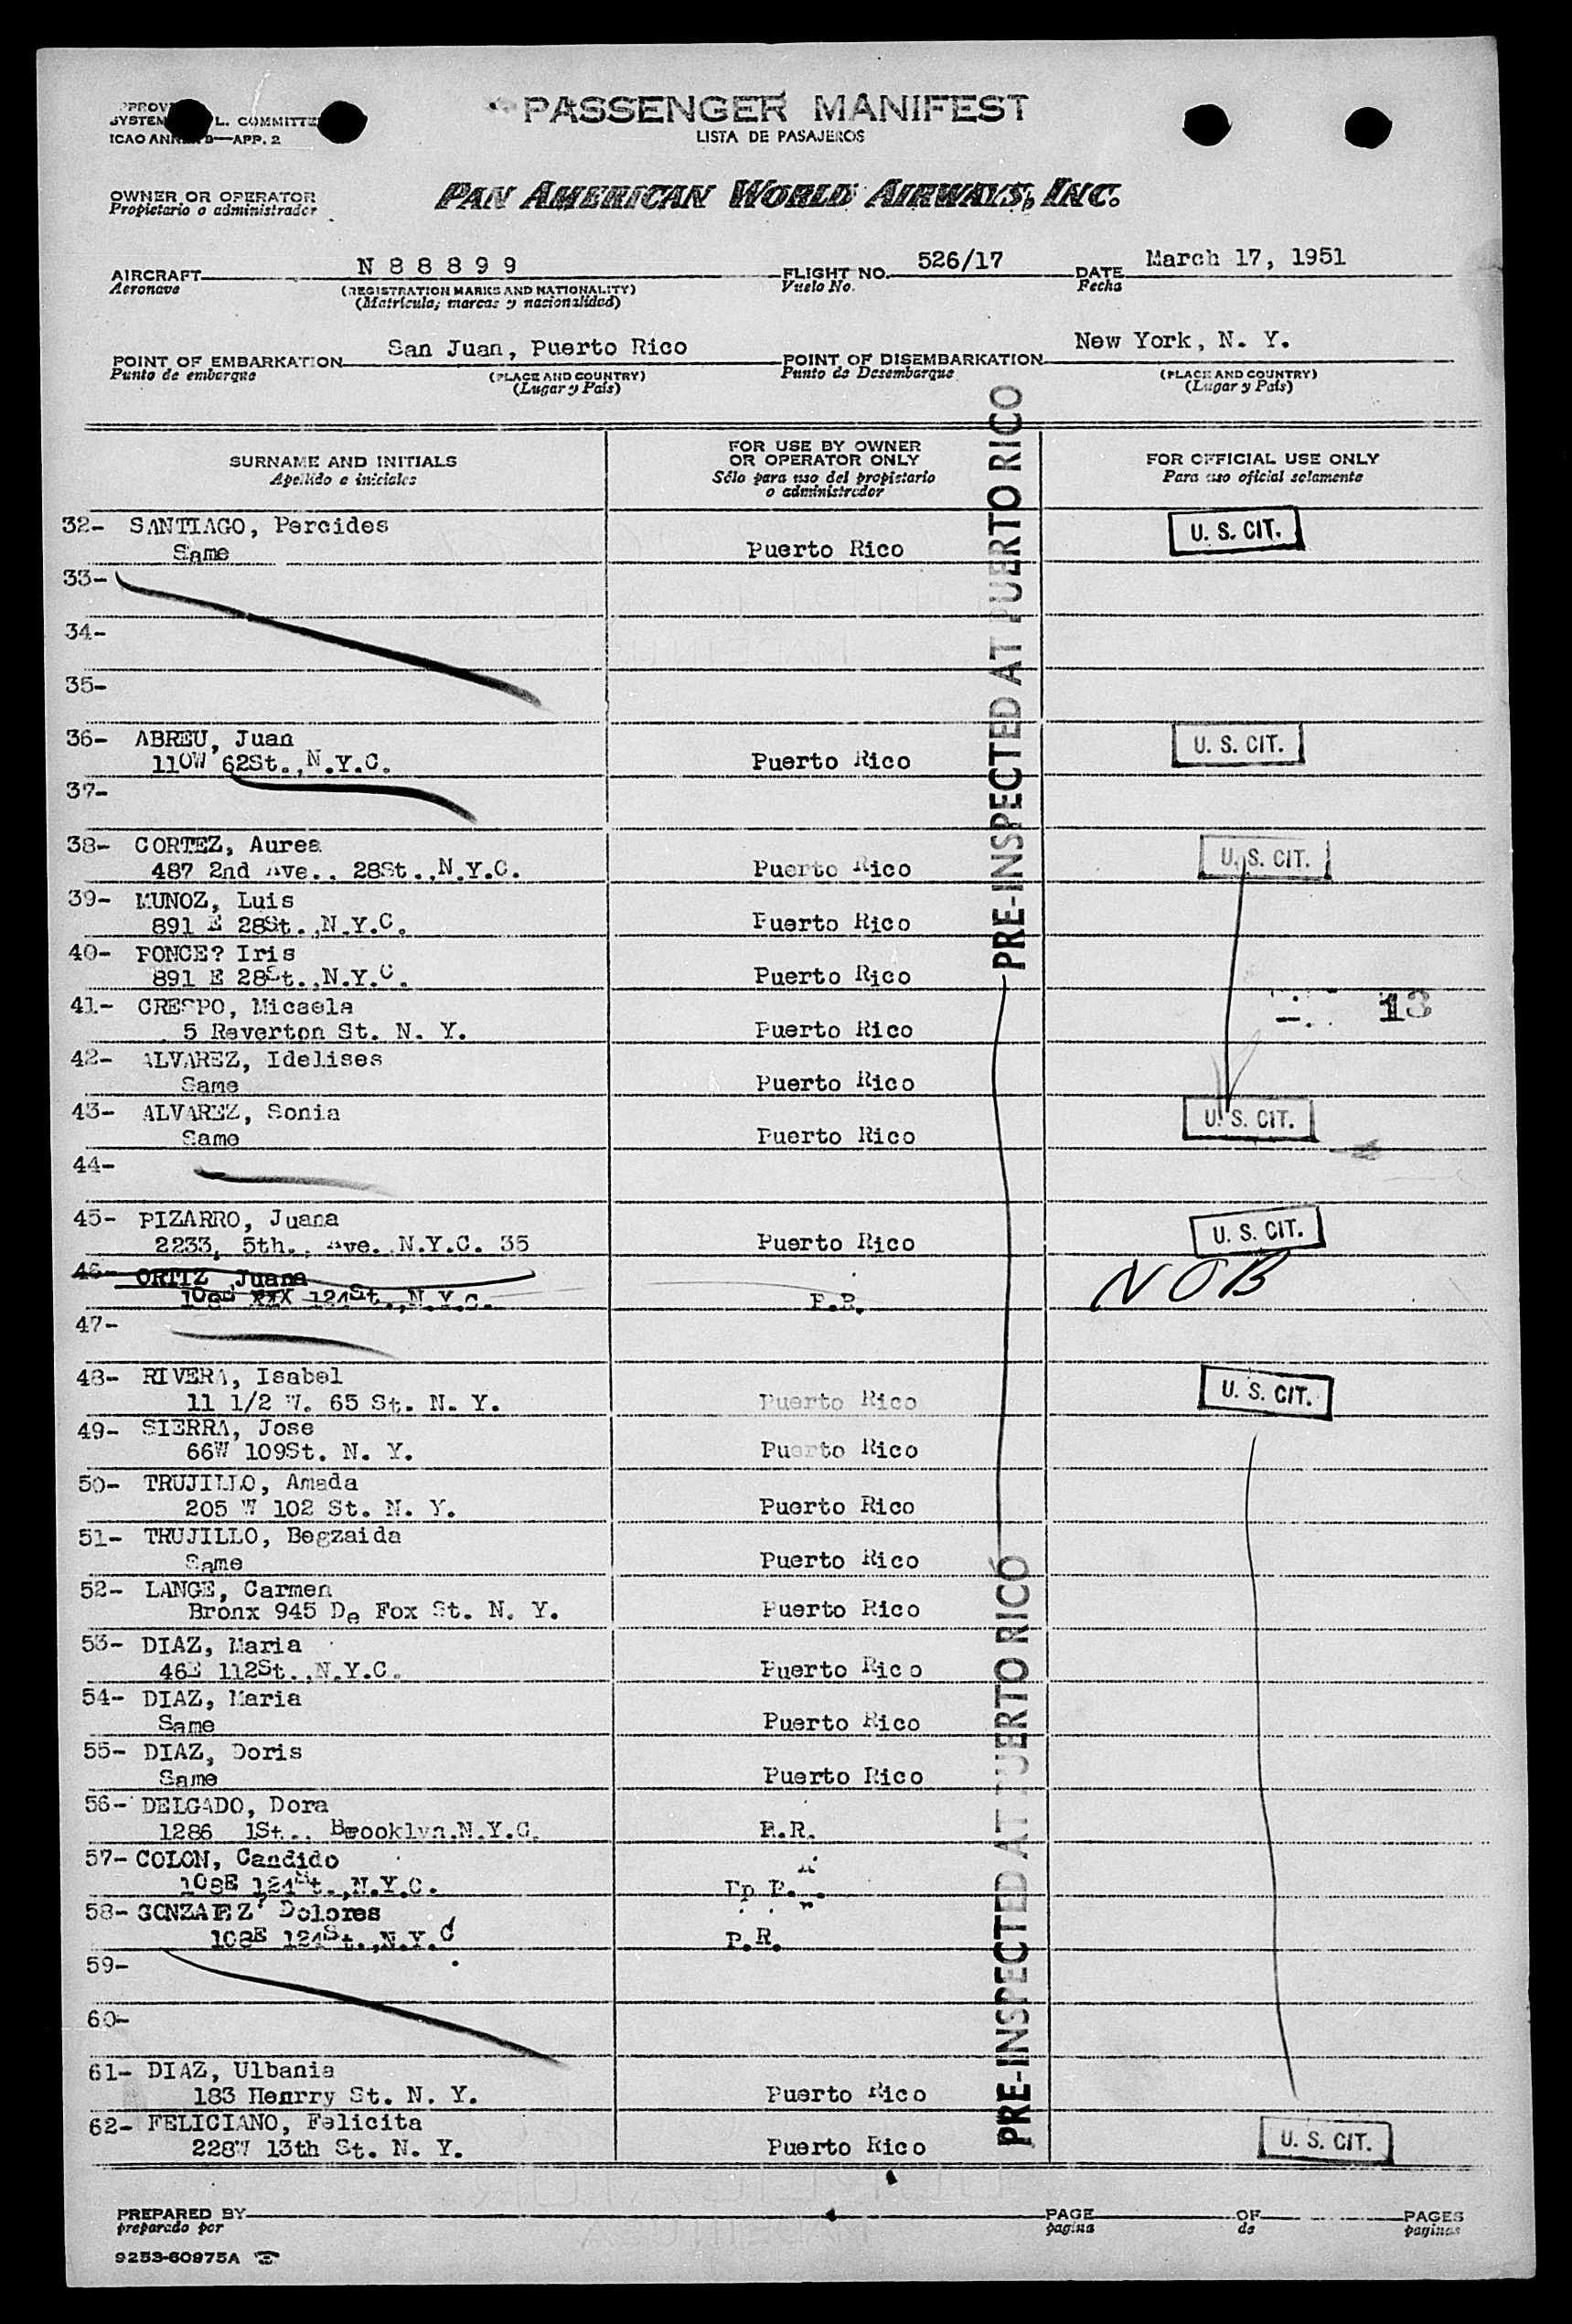 PASSENGER MANIFEST
LISTA DE PASAJEROS
L. COMMITTEE
ICAO —APP. 2
OWNER OR OPERATOR
Propietario o administrador
PAN AMERICAN WORLD AIRWAYS, INC.
AIRCRAFT N 8 8 8 9 9 FLIGHT NO. 526/17 DATE March 17, 1951
Aeronave (REGISTRATION MARKS AND NATIONALITY) Vuelo No. Fecha
(Matrícula; marcas y nacionalidad)
POINT OF EMBARKATION San Juan, Puerto Rico POINT OF DISEMBARKATION New York, N. Y.
Punto de embarque (PLACE AND COUNTRY) Punto de Desembarque (PLACE AND COUNTRY)
(Lugar y País) (Lugar y País)
SURNAME AND INITIALS FOR USE BY OWNER OR OPERATOR ONLY FOR OFFICIAL USE ONLY
Apellido e iniciales Sólo para uso del propietario o administrador Para uso oficial solamente
PRE-INSPECTED AT PUERTO RICO
32- SANTIAGO, Percides U. S. CIT.
Same Puerto Rico
33-
34-
35-
36- ABREU, Juan U. S. CIT.
110W 62St., N.Y.C. Puerto Rico
37-
38- CORTEZ, Aurea U. S. CIT.
487 2nd Ave., 28St., N.Y.C. Puerto Rico
39- MUNOZ, Luis
891 E 28St., N.Y.C. Puerto Rico
40- PONCE? Iris
891 E 28St., N.Y.C. Puerto Rico
41- CRESPO, Micaela 13
5 Reverton St. N. Y. Puerto Rico
42- ALVAREZ, Idelises
Same Puerto Rico
43- ALVAREZ, Sonia U. S. CIT.
Same Puerto Rico
44-
45- PIZARRO, Juana U. S. CIT.
2233, 5th., Ave. N.Y.C. 35 Puerto Rico
46- ORTIZ Juana NOB
124St., N.Y.C. P.R.
47-
48- RIVERA, Isabel U. S. CIT.
11 1/2 W. 65 St. N. Y. Puerto Rico
49- SIERRA, Jose
66W 109St. N. Y. Puerto Rico
50- TRUJILLO, Amada
205 W 102 St. N. Y. Puerto Rico
51- TRUJILLO, Begzaida
Same Puerto Rico
52- LANGE, Carmen
Bronx 945 De Fox St. N. Y. Puerto Rico
53- DIAZ, Maria
46E 112St., N.Y.C. Puerto Rico
54- DIAZ, Maria
Same Puerto Rico
55- DIAZ, Doris
Same Puerto Rico
56- DELGADO, Dora
1286 1St., Brooklyn.N.Y.C. P.R.
57- COLON, Candido
108E 124St., N.Y.C.
58- GONZALEZ, Dolores
108E 124St., N.Y.C P.R.
59-
60-
61- DIAZ, Ulbania
183 Henrry St. N. Y. Puerto Rico
62- FELICIANO, Felicita U. S. CIT.
228W 13th St. N. Y. Puerto Rico
PRE-INSPECTED AT PUERTO RICO
PREPARED BY PAGE OF PAGES
preparado por pagina de paginas
9253-60975A